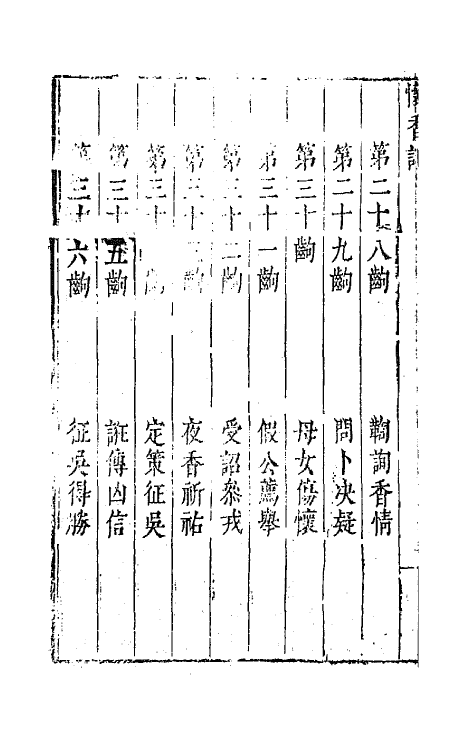 懷香記
第二十八齣 鞫詢香情
第二十九齣 問卜决疑
第三十齣 母女傷懷
第三十一齣 假公薦舉
第三十二齣 受詔參戎
第三十三齣 夜香祈祐
第三十 齣 定策征吳
第三十五齣 誑傳凶信
第三十六齣 征吳得勝